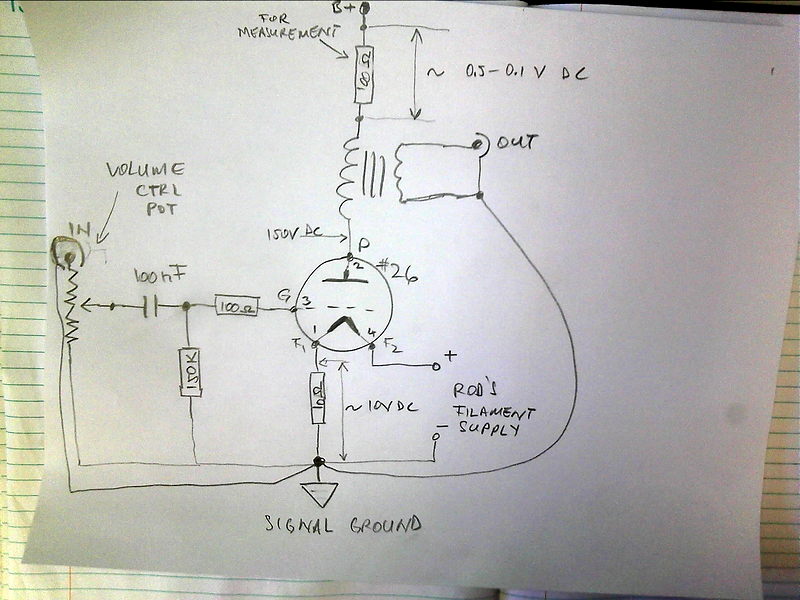 B+
FOR
MEASUREMENT
100Ω
~ 0.5-0.1 V DC
OUT
VOLUME
CTRL
POT
IN
150V DC
P
2
#26
100nF
G
3
100Ω
1
4
F1
F2
+
150K
10Ω
~10VDC
ROD'S
FILAMENT
- SUPPLY
SIGNAL GROUND